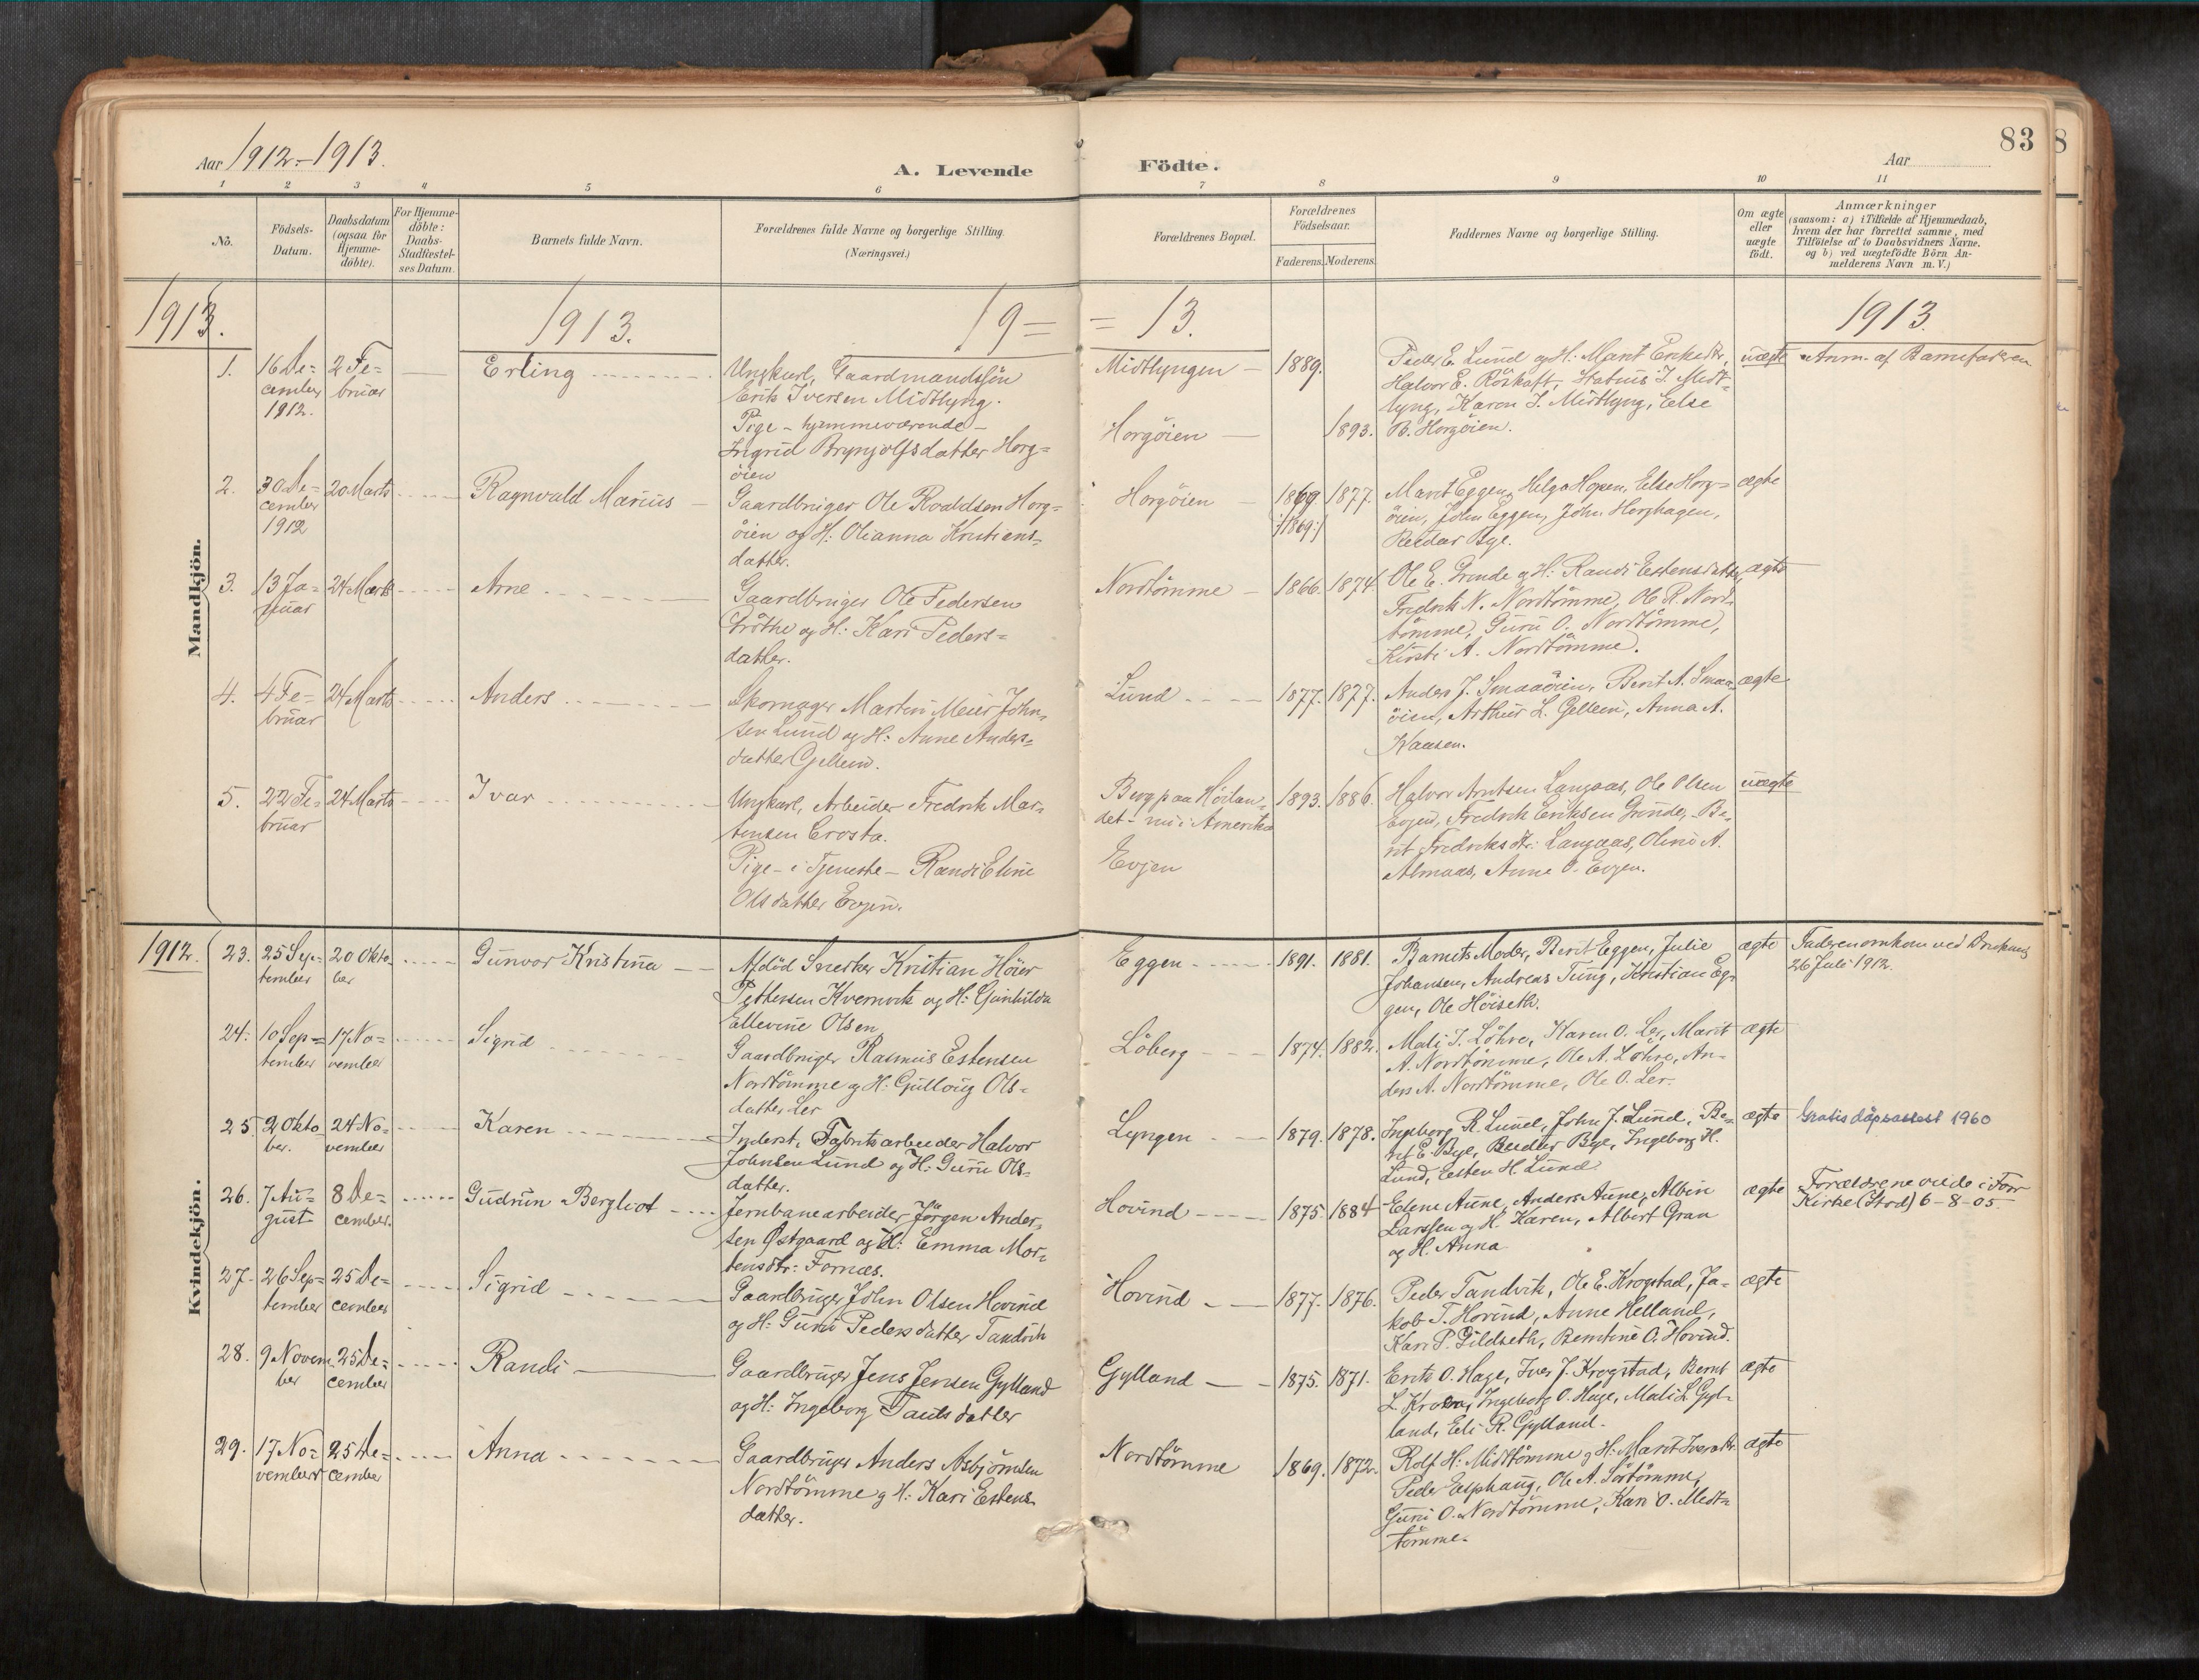 83
Aar 1912-1913.
A. Levende
Födte.
Aar
1 2 3 4 5 6 7 8 9 10 11
No.
Födsels-
Datum.
Daabsdatum
(ogsaa for
Hjemme-
döbte).
For Hjemme-
döbte:
Daabs-
Stadfæstel-
ses Datum.
Barnets fulde Navn.
Forældrenes fulde Navne og borgerlige Stilling.
(Næringsvei.)
Forældrenes Bopæl.
Forældrenes
Födselsaar.
Faderens. Moderens.
Faddernes Navne og borgerlige Stilling.
Om ægte
eller
uægte
födt.
Anmærkninger
(saasom: a) i Tilfælde af Hjemmedaab,
hvem der har forrettet samme, med
Tilföielse af to Daabsvidners Navne.
og b) ved uægtefödte Börn An-
melderens Navn m. V.)
1913. 1913. 19= =13. 1913.
Mandkjön.
1.
16 De=
cember
1912.
2 Fe=
bruar
Erling
Ungkarl, Gaardmandssön
Erik Iversen Midtlyng.
Pige - hjemmeværende -
Ingrid Brynjolfsdatter Horg=
öien
Midtlyngen
Horgöien
1889.
1893.
Peder E. Lund og H: Marit Eriksdtr,
Halvor E. Röskaft, Statius I. Midt-
lyng, Karen I. Midtlyng, Else
B. Horgöien.
uægte
Anm. af Barnefaderen
2.
30 De=
cember
1912
20 Marts
Ragnvald Marius
Gaardbruger Ole Roaldsen Horg=
öien og H: Olianna Kristians=
datter.
Horgöien
1869
/:1869:/
1877.
Marit Eggen, Helga Hopen, Else Horg=
öien, John Eggen, John Horghagen,
Reidar Bye.
ægte
3.
13 Ja-
nuar
24 Marts
Arne
Gaardbruger Ole Pedersen
og H: Kari Peders=
datter.
Nordtömme
1866. 1874.
Ole E. Grinde og H: Randi Estensdatter,
Fredrik N. Nordtömme, Ole R. Nord-
tömme, Guru O. Nordtömme,
Kirsti A. Nordtömme.
ægte
4.
4 Fe=
bruar
24 Marts
Anders
Skomager Martin Meier John-
sen Lund og H: Anne Anders=
datter Gellein.
Lund
1877. 1877.
Anders J. Smaaöien, Berit A. Smaa-
öien, Arthur L. Gellein, Anna A.
Kaasen.
ægte
5.
22 Fe=
bruar
24 Marts
Ivar
Ungkarl, Arbeider Fredrik Mar-
tinsen Crosta.
Pige - i Tjeneste - Randi Eline
Olsdatter Evjen.
Berg paa Höilan-
det - nu i Amerika
Evjen
1893. 1886.
Halvor Arntsen Langaas, Ole Olsen
Evjen, Fredrik Eriksen Grinde, Be-
rit Fredriksdtr: Langaas, Oline A.
Almaas, Anne O. Evjen.
uægte
1912.
Kvindekjön.
23.
25 Sep=
tember
20 Okto-
ber
Gunvor Kristina
Afdöd Snekker Kristian Höier
Pettersen Kvernvik og H: Gunhilda
Ellevine Olsen
Eggen
1891. 1881.
Barnets Moder, Berit Eggen, Julie
Johansen, Andreas Tung, Kristian Eg-
gen, Ole Höiseth.
ægte
Faderen omkom ved Drukning
26 Juli 1912.
24.
10 Sep=
tember
17 No=
vember
Sigrid
Gaardbruger Rasmus Estensen
Nordtömme og H: Gullaug Ols-
datter Ler
Löberg
1874. 1882.
Mali I. Löhre, Karen O. Ler, Marit
A. Nordtömme, Ole A. Löhre, An-
ders A. Nordtömme, Ole O. Ler.
ægte
25.
2 Okto-
ber.
24 No=
vember
Karen
Inderst, Fabrikarbeider Halvor
Johnsen Lund og H: Guru Ols-
datter.
Lyngen
1879. 1878.
Ingeborg R. Lund, John J. Lund, Be-
rit E. Bye, Reidar Bye, Ingeborg H.
Lund, Esten H. Lund
ægte
Gratis dåpsattest 1960
26.
7 Au=
gust
8 De=
cember.
Gudrun Bergliot
Jernbanearbeider Jörgen Ander-
sen Østgaard og H: Emma Mor-
tensdtr: Fornæs.
Hovind
1875 1884
Edene Aune, Anders Aune, Albin
Larssen og H. Karen, Albert Gran
og H. Anna
ægte
Forældrene viede i For
Kirke (Stod) 6-8-05.
27.
26 Sep=
tember
25 De=
cember
Sigrid
Gaardbruger John Olsen Hovind
og H: Guru Pedersdatter Tandvik
Hovind
1877. 1876.
Peder Tandvik, Ole E. Krogstad, Ja-
kob T. Hovind, Anne Helland,
Kari P. Gildseth, Berntine O. Hovind.
ægte
28.
9 Novem-
ber
25 De=
cember
Randi
Gaardbruger Jens Jensen Gylland
og H: Ingeborg datter
Gylland
1875. 1871.
Erik O. Hage, Iver J. Krogstad, Bernt
L. Ingeborg O. Hage, Mali L. Gyl-
land, Eli R. Gylland.
ægte
29.
17 No=
vember
25 De=
cember
Anna
Gaardbruger Anders Asbjörnsen
Nordtömme og H: Kari Estens-
datter.
Nordtömme
1869. 1872.
Rolf H. Midttömme og H: Marit Iversdtr.
Peder Esphaug, Ole A. Sörtömme,
Guru O. Nordtömme, Kari O. Midt-
tömme.
ægte